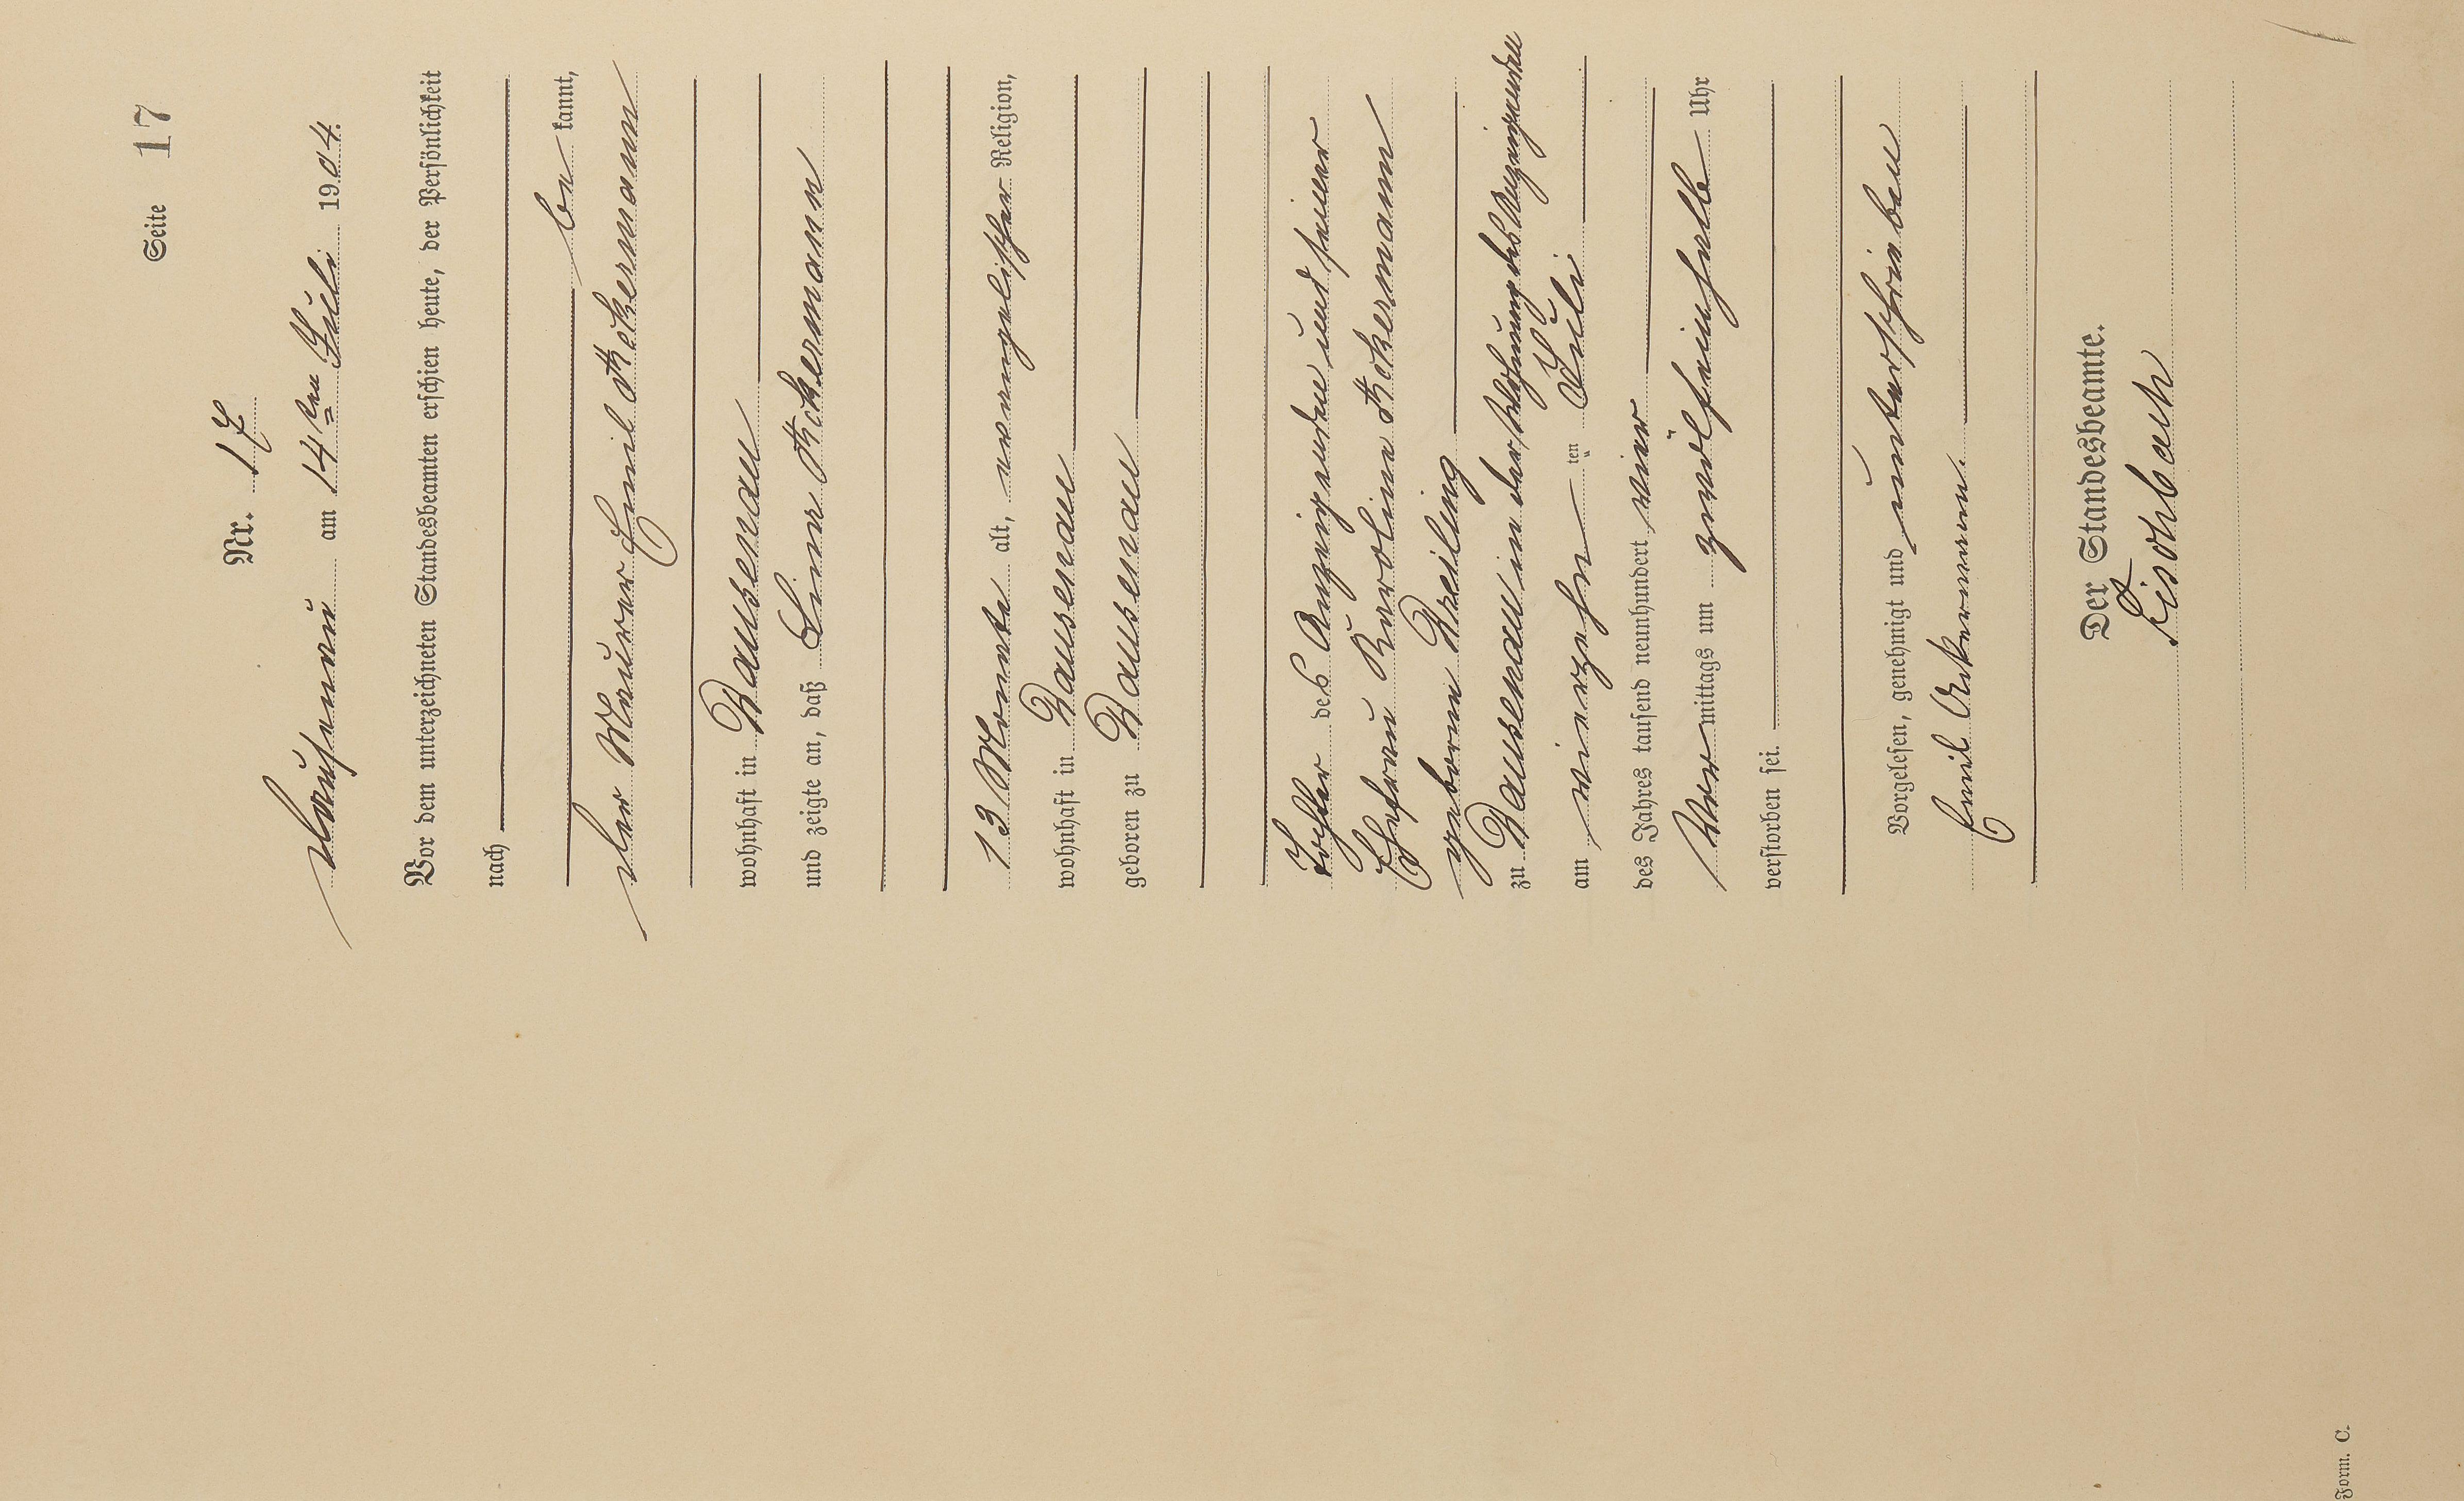 Seite 17
Nr. 17
Dausenau am 14ten Juli 1904.
Vor dem unterzeichneten Standesbeamten erschien heute, der Persönlichkeit
nach
be kannt,
der Maurer Emil Ackermann
wohnhaft in Dausenau
und zeigte an, daß Lina Ackermann
13 Monate alt, evangelischer Religion,
wohnhaft in Dausenau
geboren zu Dausenau
Tochter des Anzeigenden und seiner
Ehefrau Karoline Ackermann
geborne Kreiling
zu Dausenau in der Wohnung des Anzeigenden
am vierzehn ten Juli
des Jahres tausend neunhundert vier
Vor mittags um zwölfeinhalb Uhr
verstorben sei.
Vorgelesen, genehmigt und unterschrieben
Emil Ackermann.
Der Standesbeamte.
Fischbach
Form. C.